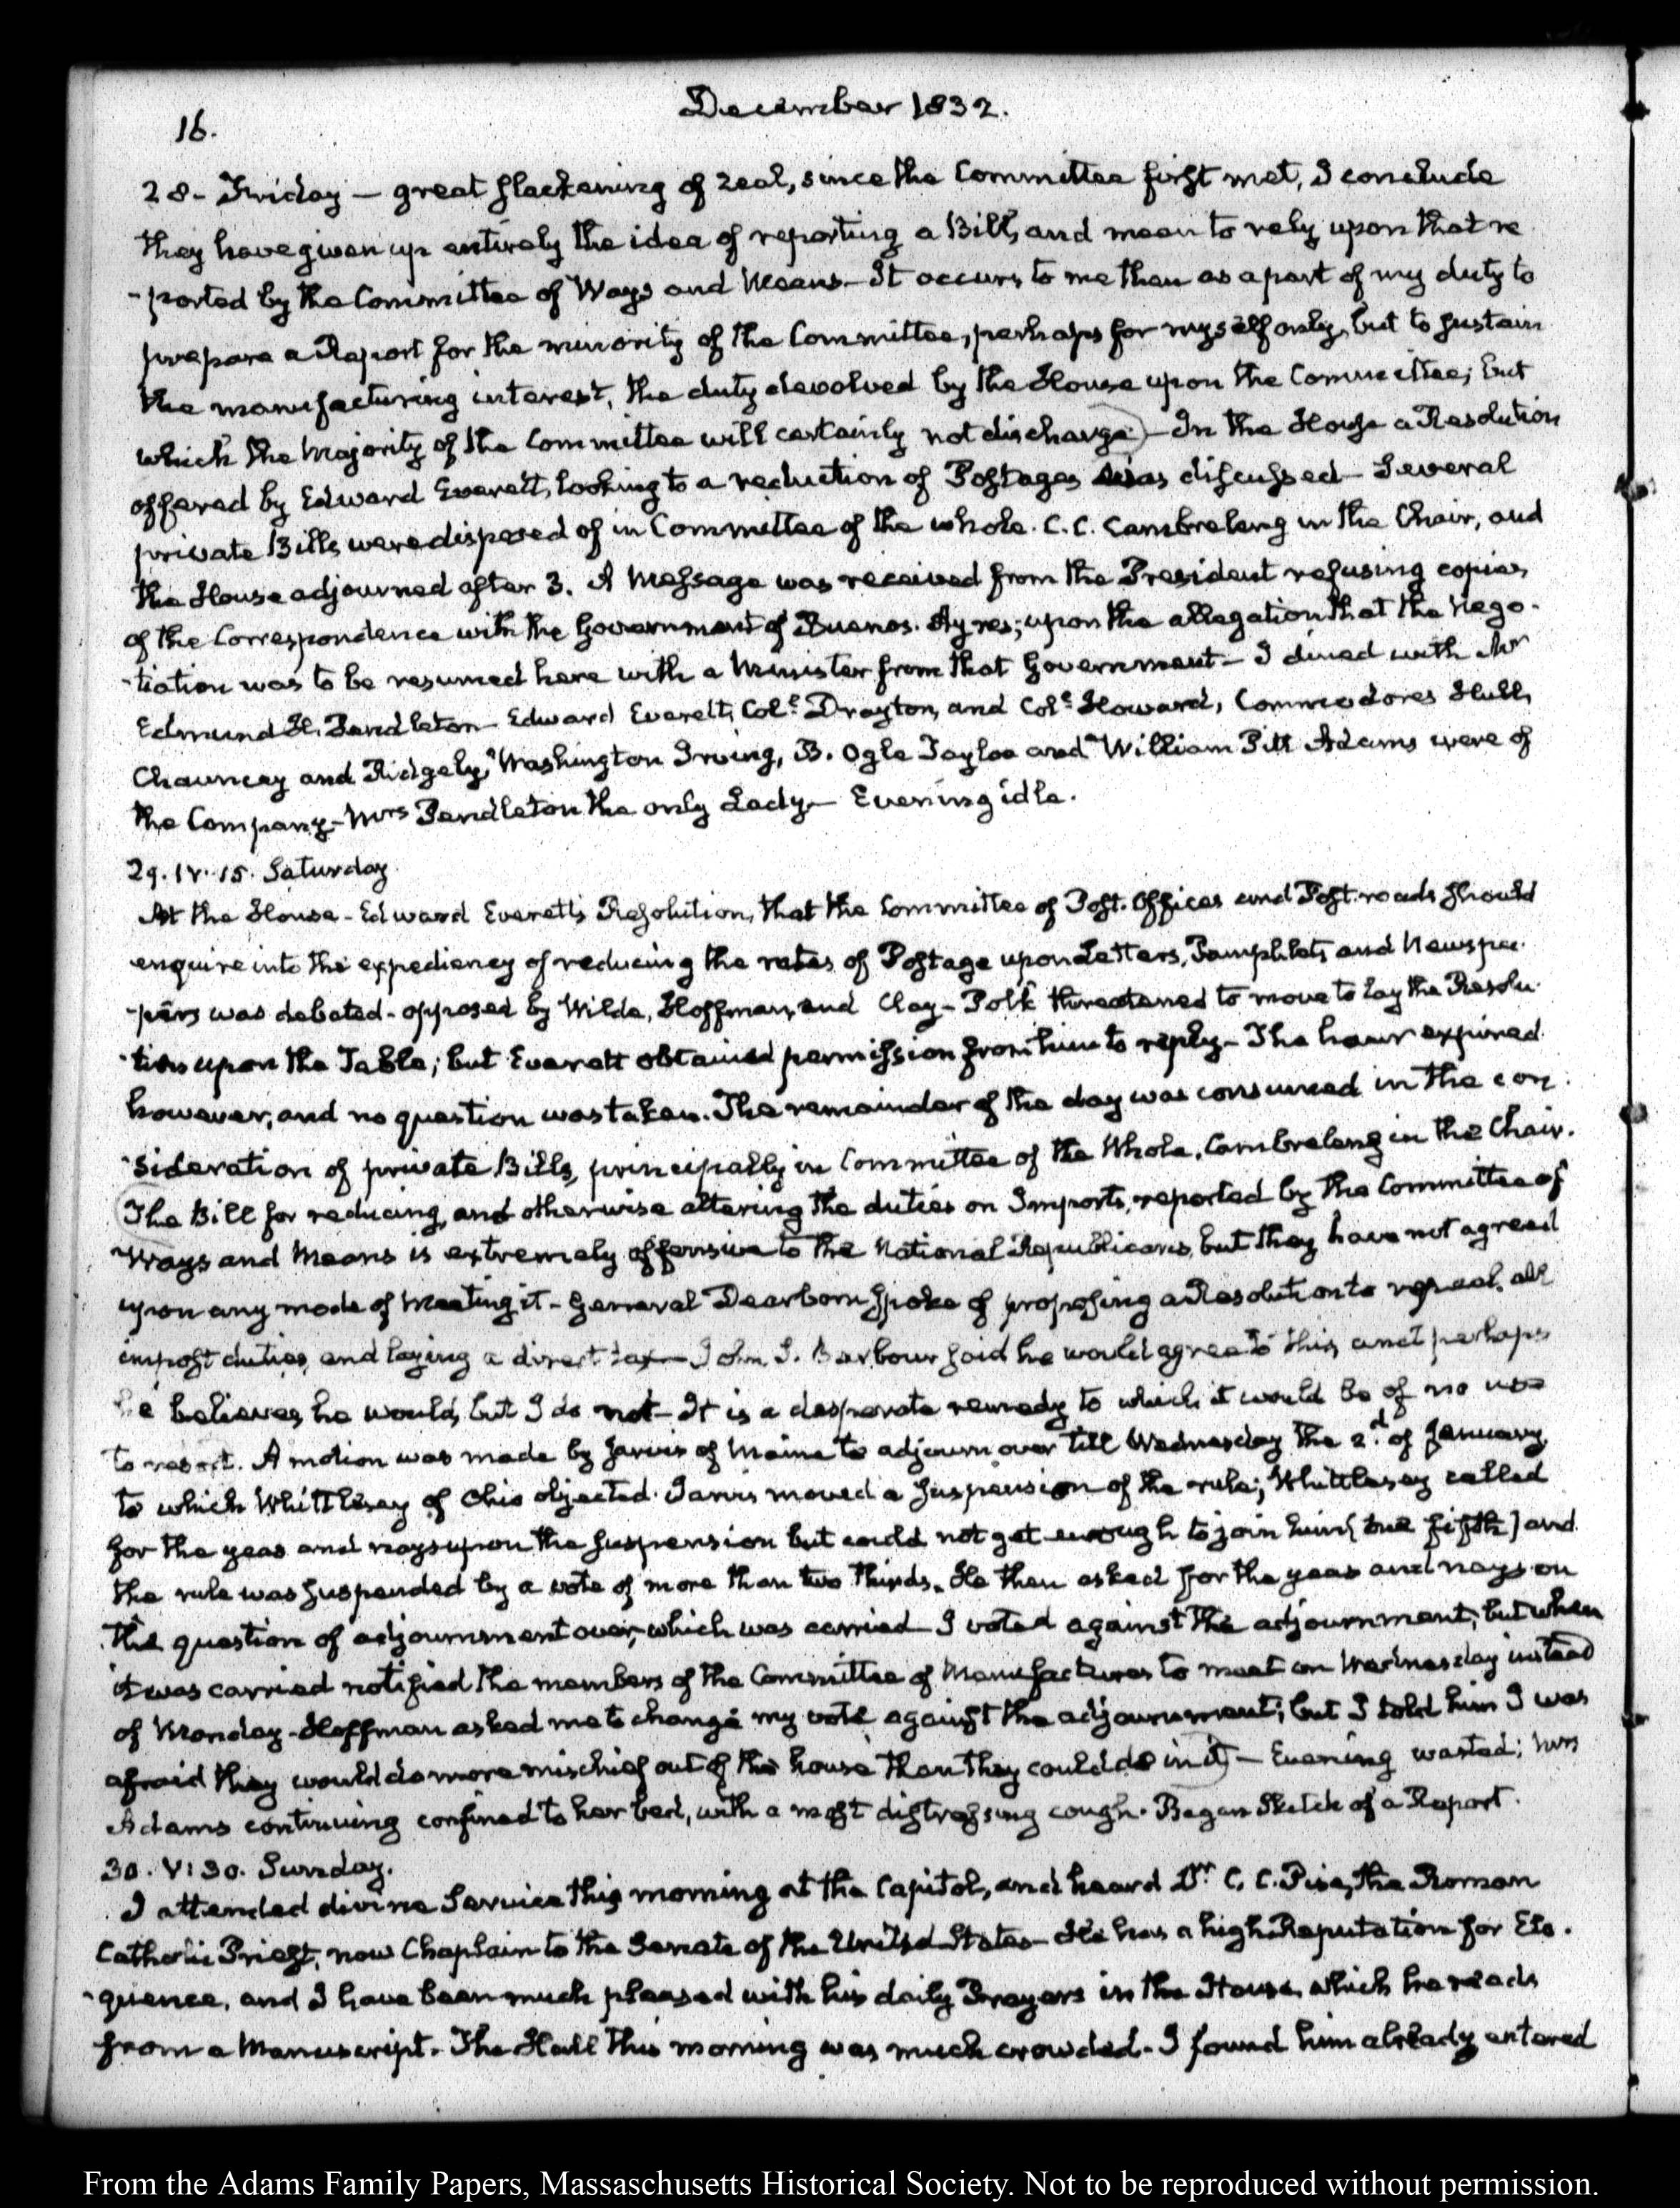 16.
December 1832.
28 - Friday — great slackening of zeal, since the Committee first met, I conclude
they have given up entirely the idea of reporting a Bill, and mean to rely upon that re
-ported by the Committee of Ways and Means - It occurs to me then as a part of my duty to
prepare a Report for the minority of the Committee, perhaps for myself only, but to sustain
the manufacturing interest, the duty devolved by the House upon the Committee; but
which the Majority of the Committee will certainly not discharge - In the House a Resolution
offered by Edward Everett, looking to a reduction of Postages was discussed - Several
private Bills were disposed of in Committee of the whole. C. C. Cambreleng in the Chair, and
the House adjourned after 3. A Message was received from the President refusing copies
of the Correspondence with the Government of Buenos-Ayres; upon the allegation that the Nego-
-tiation was to be resumed here with a Minister from that Government - I dined with Mr
Edmund H. Pendleton - Edward Everett, Cols. Drayton, and Howard, Commodores Hull,
Chauncey and Ridgely, Washington Irving, B. Ogle Tayloe and William Pitt Adams were of
the Company - Mrs Pendleton the only Lady - Evening idle.
29. IV. 15. Saturday
At the House - Edward Everett's Resolution, that the Committee of Post-Offices and Post-roads should
enquire into the expediency of reducing the rates of Postage upon Letters, Pamphlets and Newspa-
-pers was debated - opposed by Wilde, Hoffman, and Clay - Polk threatened to move to lay the Resolu-
-tion upon the Table; but Everett obtained permission from him to reply - The hour expired
however, and no question was taken. The remainder of the day was consumed in the con-
-sideration of private Bills, principally in Committee of the Whole, Cambreleng in the Chair.
The Bill for reducing, and otherwise altering the duties on Imports, reported by the Committee of
Ways and Means is extremely offensive to the National Republicans, but they have not agreed
upon any mode of meeting it - General Dearborn spoke of proposing a Resolution to repeal all
impost duties, and laying a direct tax - John S. Barbour said he would agree to this, and perhaps
he believes he would, but I do not - It is a desperate remedy to which it would be of no use
to resort. A motion was made by Jarvis of Maine to adjourn over till Wednesday the 2.d of January,
to which Whittlesey of Ohio objected. Jarvis moved a suspension of the rule; Whittlesey called
for the yeas and nays upon the suspension but could not get enough to join him (one fifth) and
the rule was suspended by a vote of more than two thirds. He then asked for the yeas and nays on
the question of adjournment over, which was carried - I voted against the adjournment; but when
it was carried notified the members of the Committee of Manufactures to meet on Wednesday instead
of Monday - Hoffman asked me to change my vote against the adjournment; but I told him I was
afraid they would do more mischief out of the house than they could do in it - Evening wasted; Mrs
Adams continuing confined to her bed, with a most distressing cough. Began Sketch of a Report.
30. V: 30. Sunday.
I attended divine Service this morning at the Capitol, and heard Dr. C. C. Pise, the Roman
Catholic Priest, now Chaplain to the Senate of the United States - He has a high Reputation for Elo-
-quence, and I have been much pleased with his daily Prayers in the House, which he reads
from a Manuscript. The Hall this morning was much crowded - I found him already entered
From the Adams Family Papers, Massachusetts Historical Society. Not to be reproduced without permission.